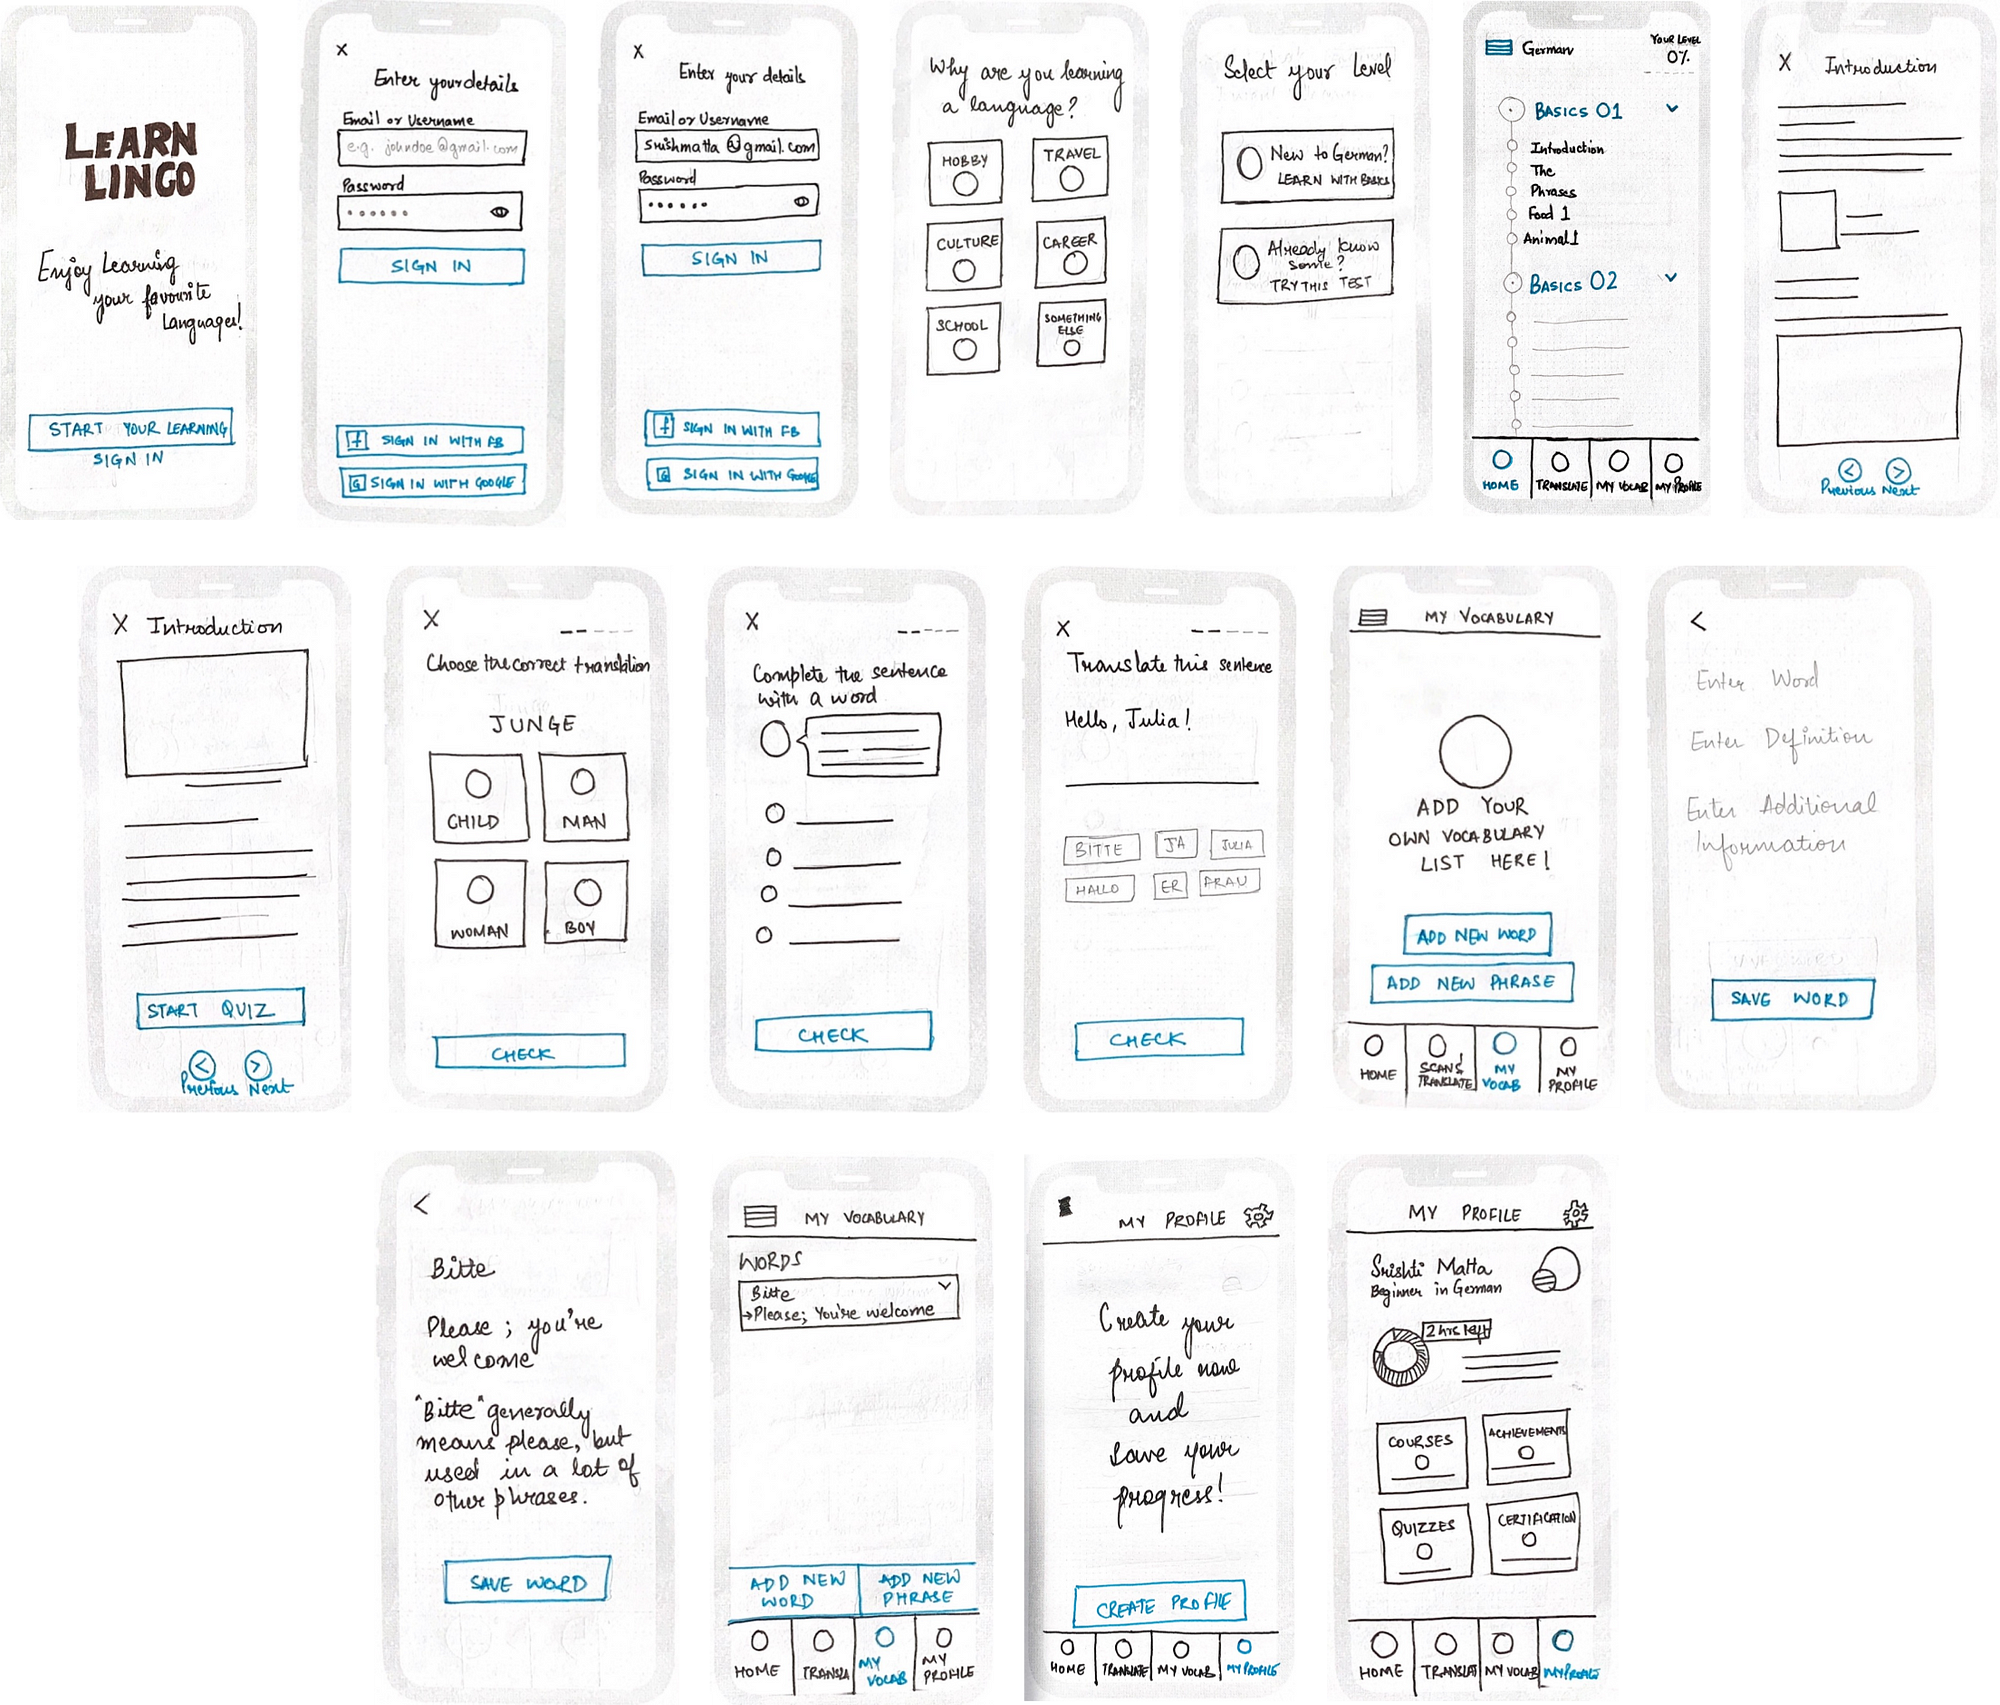 LEARN
LINGO
Enjoy Learning
your favourite
Languages!
START YOUR LEARNING
SIGN IN
X
Enter your details
Email or Username
e.g. johndoe@gmail.com
Password
SIGN IN
f SIGN IN WITH FB
G SIGN IN WITH GOOGLE
X
Enter your details
Email or Username
srishmatta@gmail.com
Password
SIGN IN
f SIGN IN WITH FB
G SIGN IN WITH GOOGLE
Why are you learning
a language?
HOBBY
TRAVEL
CULTURE
CAREER
SCHOOL
SOMETHING
ELSE
Select your Level
New to German?
LEARN WITH BASICS
Already know
some?
TRY THIS TEST
German
YOUR LEVEL
0%
BASICS 01
Introduction
The
Phrases
Food 1
Animal 1
BASICS 02
HOME
TRANSLATE
MY VOCAB
MY PROFILE
X Introduction
< >
Previous Next
X Introduction
START QUIZ
< >
Previous Next
X
Choose the correct translation
JUNGE
CHILD
MAN
WOMAN
BOY
CHECK
X
Complete the sentence
with a word
CHECK
X
Translate this sentence
Hello, Julia!
BITTE
JA
JULIA
HALLO
ER
FRAU
CHECK
MY VOCABULARY
ADD YOUR
OWN VOCABULARY
LIST HERE!
ADD NEW WORD
ADD NEW PHRASE
HOME
SCAN &
TRANSLATE
MY
VOCAB
MY
PROFILE
<
Enter Word
Enter Definition
Enter Additional
Information
SAVE WORD
<
Bitte
Please; you're
welcome
"Bitte" generally
means please, but
used in a lot of
other phrases.
SAVE WORD
MY VOCABULARY
WORDS
Bitte
→Please; You're welcome
ADD NEW
WORD
ADD NEW
PHRASE
HOME
TRANSLA
MY
VOCAB
MY
PROFILE
MY PROFILE
Create your
profile now
and
save your
progress!
CREATE PROFILE
HOME
TRANSLATE
MY VOCAB
MY PROFILE
MY PROFILE
Srishti Matta
Beginner in German
2 hrs left
COURSES
ACHIEVEMENTS
QUIZZES
CERTIFICATION
HOME
TRANSLAT
MY VOCAB
MY PROFILE